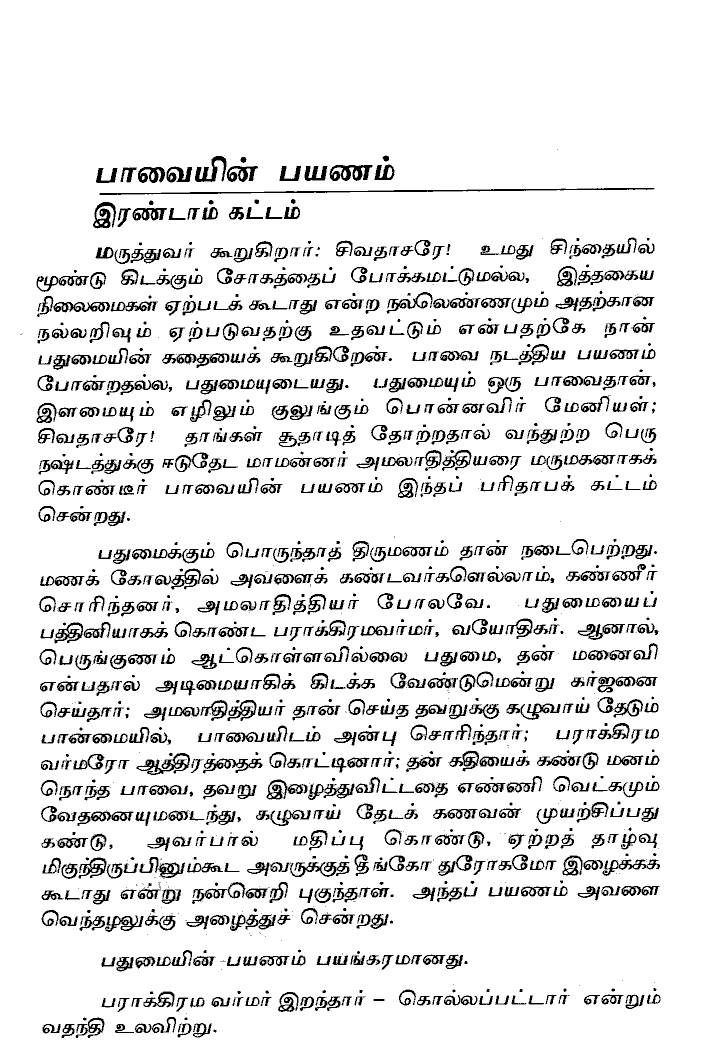 பாவையின் பயணம்
இரண்டாம் கட்டம்
மருத்துவர் கூறுகிறார்: சிவதாசரே! உமது சிந்தையில்
மூண்டு கிடக்கும் சோகத்தைப் போக்கமட்டுமல்ல, இத்தகைய
நிலைமைகள் ஏற்படக் கூடாது என்ற நல்லெண்ணமும் அதற்கான
நல்லறிவும் ஏற்படுவதற்கு உதவட்டும் என்பதற்கே நான்
பதுமையின் கதையைக் கூறுகிறேன். பாவை நடத்திய பயணம்
போன்றதல்ல, பதுமையுடையது. பதுமையும் ஒரு பாவைதான்,
இளமையும் எழிலும் குலுங்கும் பொன்னவிர் மேனியள்;
சிவதாசரே! தாங்கள் சூதாடித் தோற்றதால் வந்துற்ற பெரு
நஷ்டத்துக்கு ஈடுதேட மாமன்னர் அமலாதித்தியரை மருமகனாகக்
கொண்டீர் பாவையின் பயணம் இந்தப் பரிதாபக் கட்டம்
சென்றது.
பதுமைக்கும் பொருந்தாத் திருமணம் தான் நடைபெற்றது.
மணக் கோலத்தில் அவளைக் கண்டவர்களெல்லாம், கண்ணீர்
சொரிந்தனர், அமலாதித்தியர் போலவே. பதுமையைப்
பத்தினியாகக் கொண்ட பராக்கிரமவர்மர், வயோதிகர். ஆனால்,
பெருங்குணம் ஆட்கொள்ளவில்லை பதுமை, தன் மனைவி
என்பதால் அடிமையாகிக் கிடக்க வேண்டுமென்று கர்ஜனை
செய்தார்; அமலாதித்தியர் தான் செய்த தவறுக்கு கழுவாய் தேடும்
பான்மையில், பாவையிடம் அன்பு சொரிந்தார்; பராக்கிரம
வர்மரோ ஆத்திரத்தைக் கொட்டினார்; தன் கதியைக் கண்டு மனம்
நொந்த பாவை, தவறு இழைத்துவிட்டதை எண்ணி வெட்கமும்
வேதனையுமடைந்து, கழுவாய் தேடக் கணவன் முயற்சிப்பது
கண்டு, அவர்பால் மதிப்பு கொண்டு, ஏற்றத் தாழ்வு
மிகுந்திருப்பினும்கூட அவருக்குத் தீங்கோ துரோகமோ இழைக்கக்
கூடாது என்று நன்னெறி புகுந்தாள். அந்தப் பயணம் அவளை
வெந்தழலுக்கு அழைத்துச் சென்றது.
பதுமையின் பயணம் பயங்கரமானது.
பராக்கிரம வர்மர் இறந்தார் – கொல்லப்பட்டார் என்றும்
வதந்தி உலவிற்று.